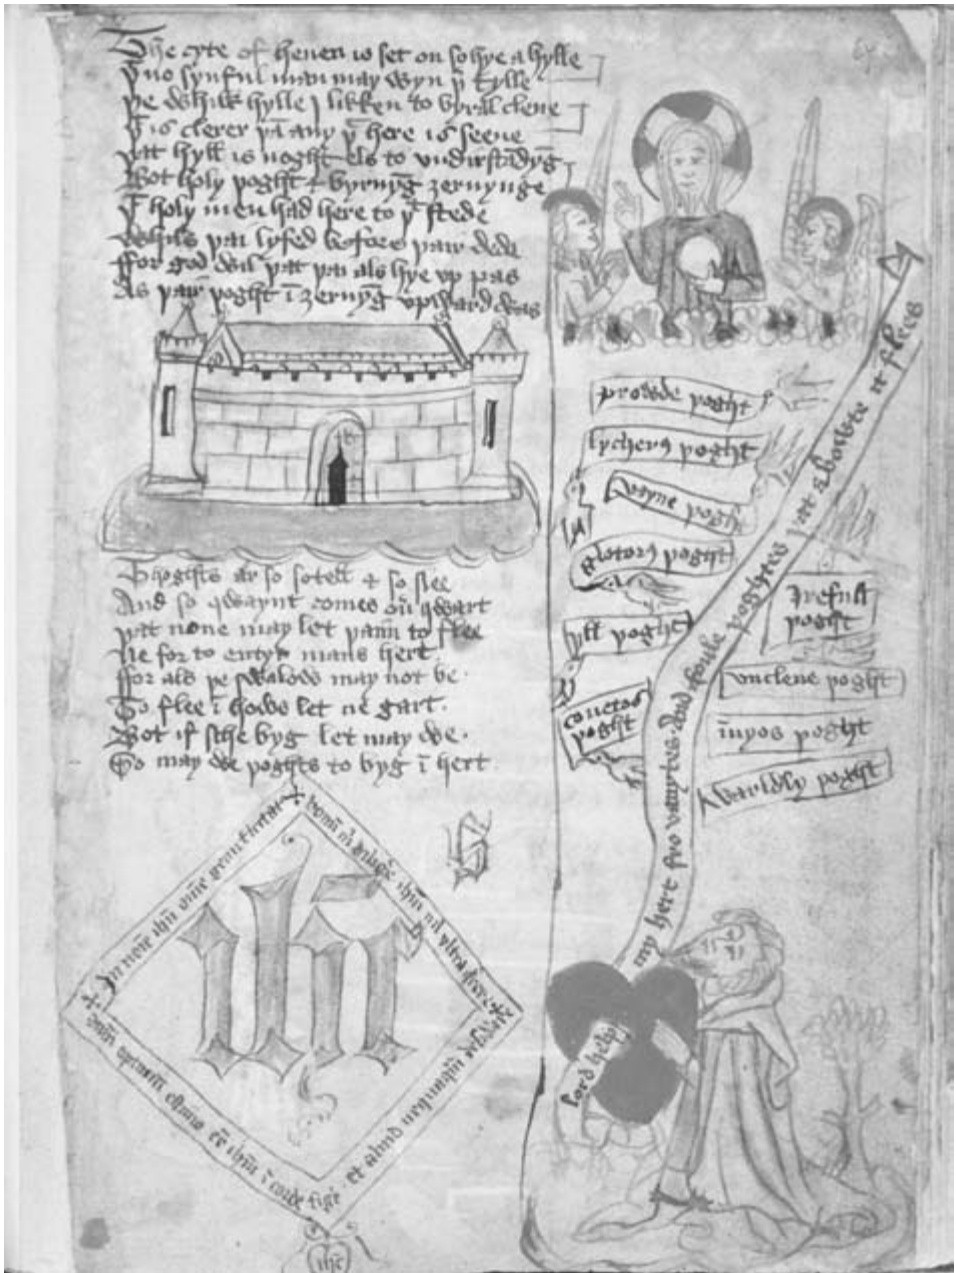 The cyte of heuen is set on so hye a hylle
Þt no synful man may wyn þr tylle
Þe whilk hylle I likken to byral clene
Þt is clerer þā any þt here is seene
Þat hyll is noght els to vndirstādyg̅
Bot holy þoght & byrnyg̅ ȝernynge
Þt holy men had here to þt stede
Whils þai lyfed before þair dede
ffor god wil þat þai als hye vp pas
Als þair þoght ī ȝernyg̅ vpward was
Thoghts ar so sotell & so slee
And so qwaynt comes
þat none may let þaim to flee
Ne for to entyr mans hert
ffor als þe swalow may not be
To flee ī howse let ne gart
Bot if sche byg let may we
So may we þoghts to byg ī hert
prowde þoght
lycherꝯ þoght
Vayne þoght
glotorꝯ þoght
yll þoght
couetos
þoght
Irefull
þoght
Vnclene þoght
īuyos þoght
Warldly þoght
my hert fro vanytes And foule þoghtes þat abowte it flees
lord help
ihc
ihc